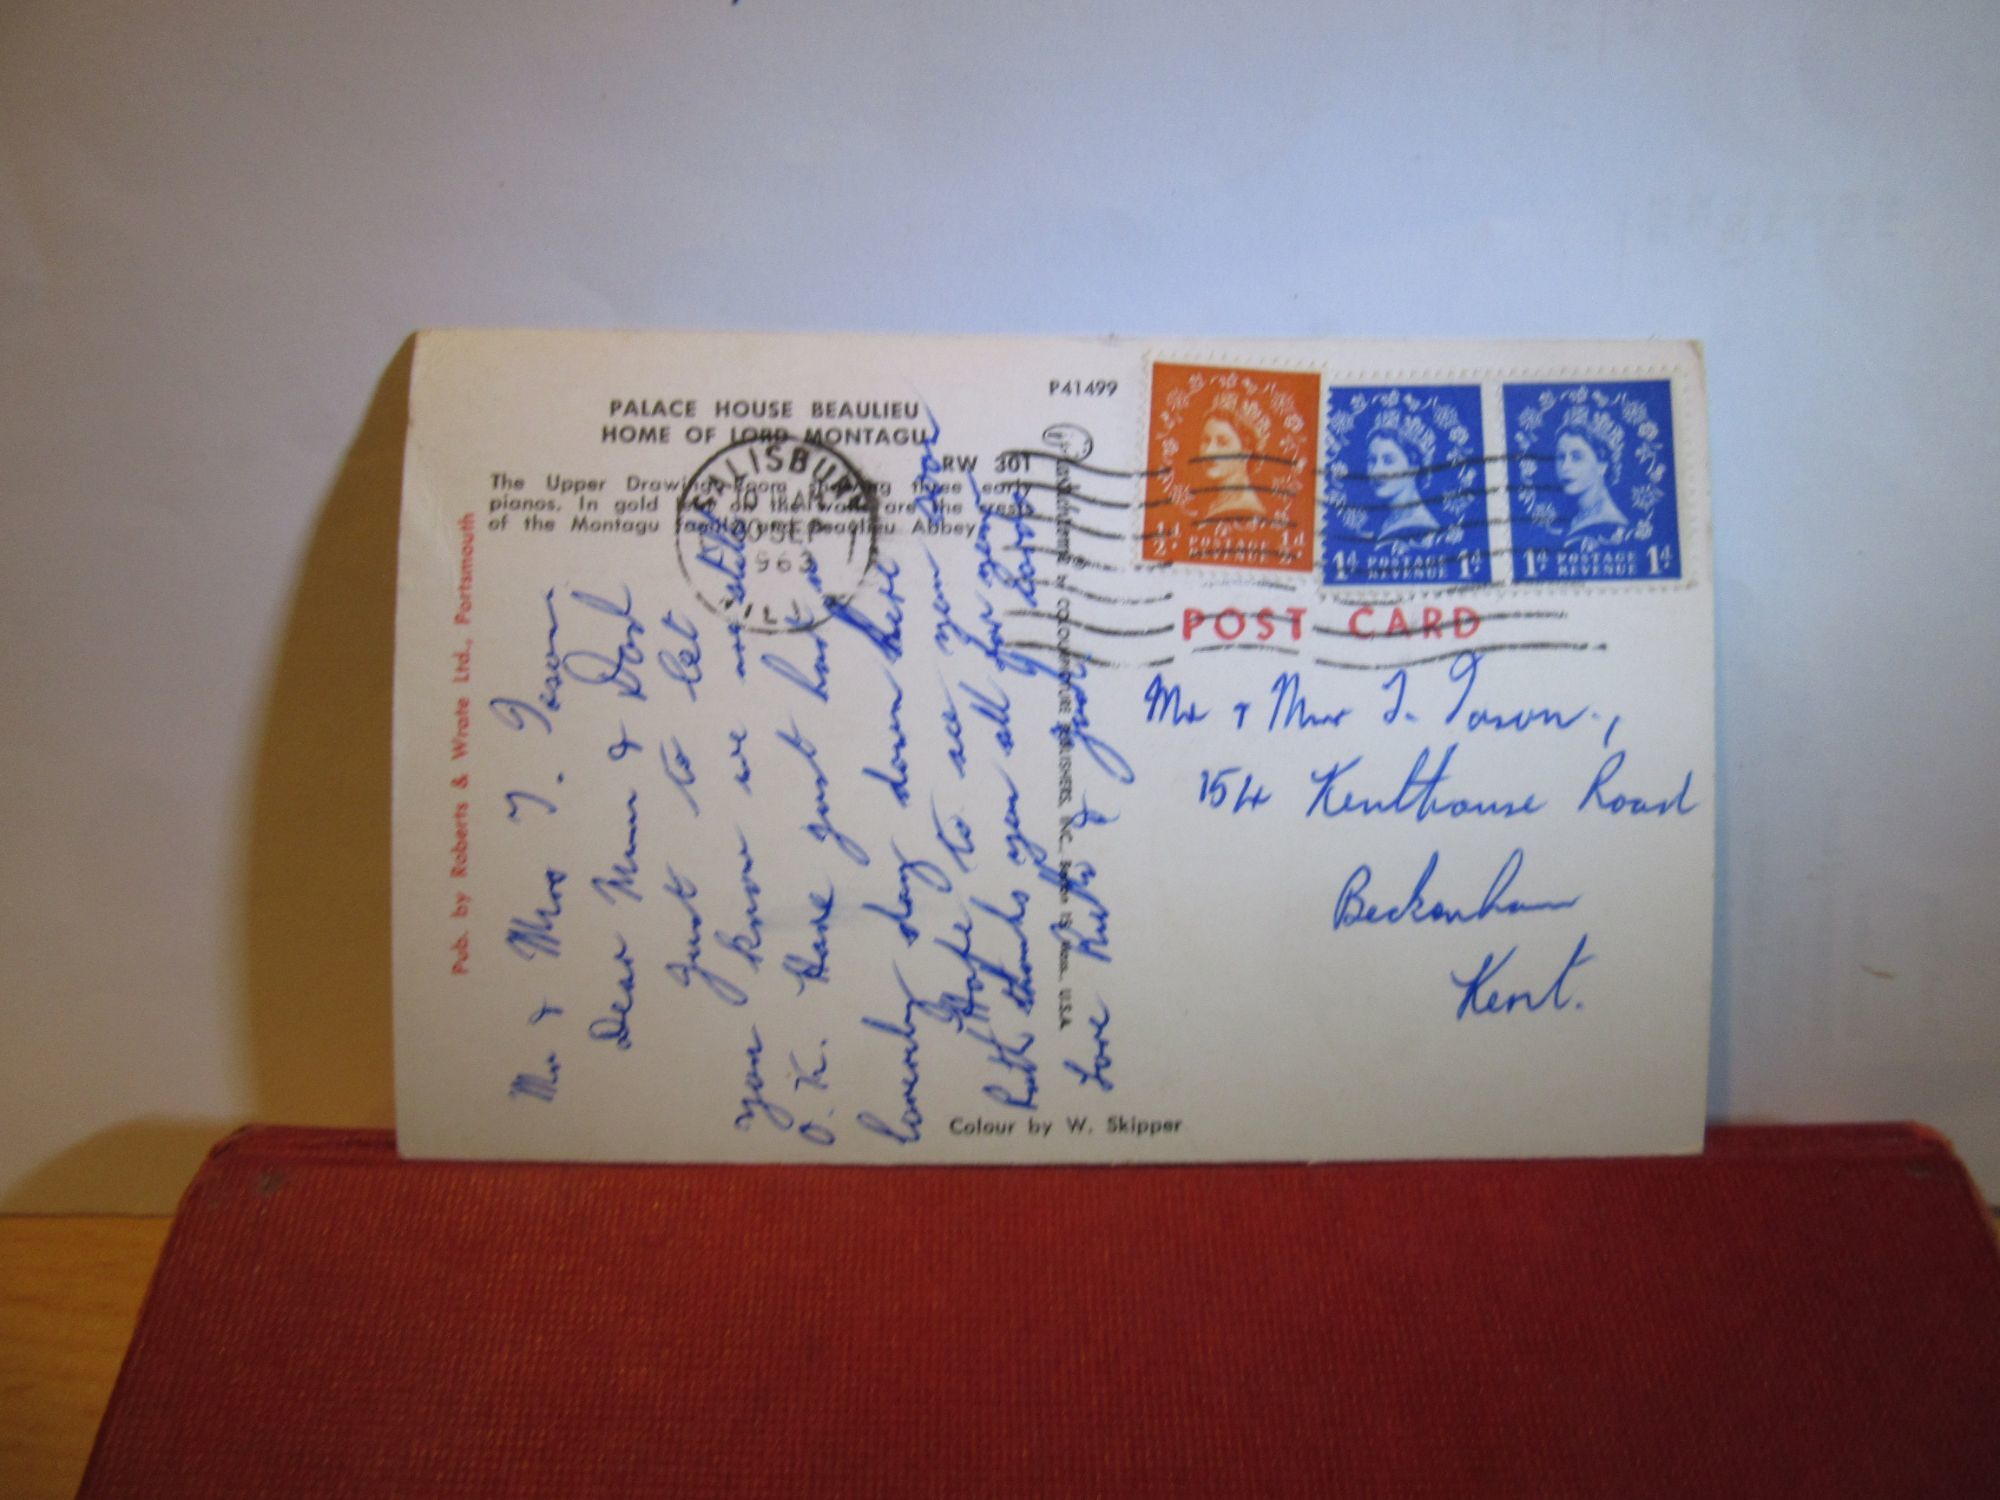 PALACE HOUSE BEAULIEU
HOME OF LORD MONTAGU
P41499
RW 301
The Upper Drawing Room showing three early
pianos. In gold on the walls are the crests
of the Montagu family and Beaulieu Abbey
SALISBURY
10 AM
SEP
Pub. by Roberts & Wrate Ltd., Portsmouth
Mr & Mrs T.
Dear Mum & Dad
Just to let
you know we are still
O.K. Have just had a
day down here
Hope to see you soon
Ruth thanks you all for your
Love Ruth &
Plastichrome ® by COLOURPICTURE PUBLISHERS, INC., Boston 15, Mass., U.S.A.
Colour by W. Skipper
½d POSTAGE REVENUE ½d
1d POSTAGE REVENUE 1d
1d POSTAGE REVENUE 1d
POST CARD
Mr & Mrs T.
154 Kenthouse Road
Beckenham
Kent.